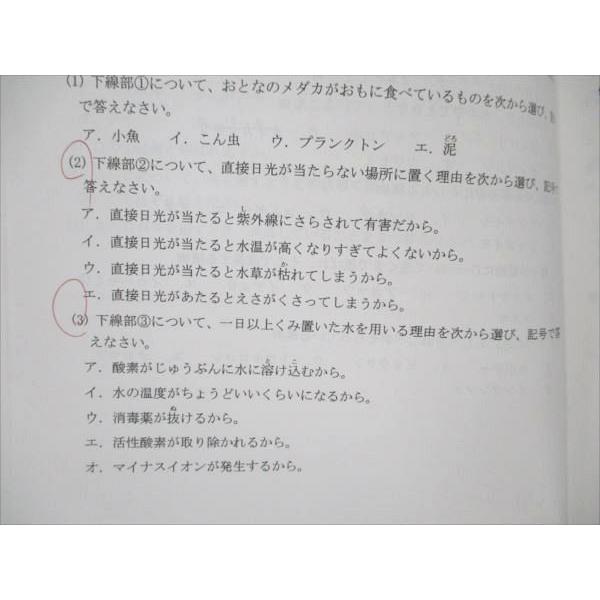 (1) 下線部①について、おとなのメダカがおもに食べているものを次から選び、
で答えなさい。
ア．小魚 イ．こん虫 ウ．プランクトン エ．泥
どろ
(2) 下線部②について、直接日光が当たらない場所に置く理由を次から選び、記号
答えなさい。
ア．直接日光が当たると紫外線にさらされて有害だから。
し
イ．直接日光が当たると水温が高くなりすぎてよくないから。
ウ．直接日光が当たると水草が枯れてしまうから。
か
エ．直接日光があたるとえさがくさってしまうから。
(3) 下線部③について、一日以上くみ置いた水を用いる理由を次から選び、記号で答
えなさい。
ア．酸素がじゅうぶんに水に溶け込むから。
と こ
イ．水の温度がちょうどいいくらいになるから。
ウ．消毒薬が抜けるから。
ぬ
エ．活性酸素が取り除かれるから。
オ．マイナスイオンが発生するから。